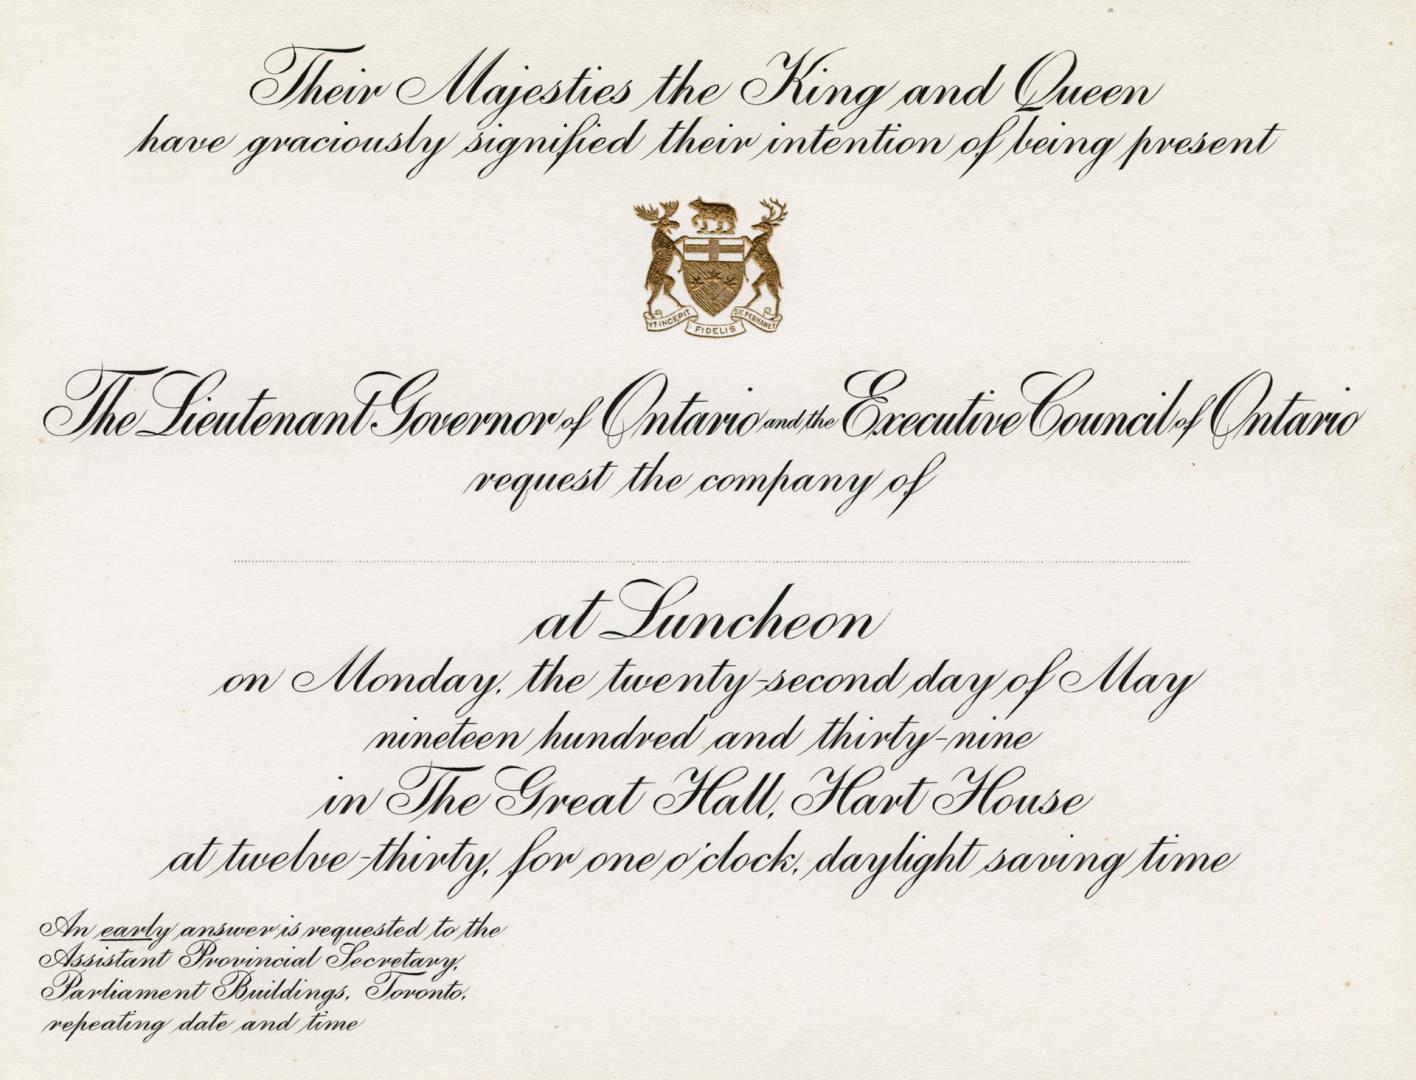 Their Majesties the King and Queen
have graciously signified their intention of being present
VT·INCEPIT FIDELIS SIC PERMANET
The Lieutenant Governor of Ontario and the Executive Council of Ontario
request the company of
at Luncheon
on Monday, the twenty-second day of May
nineteen hundred and thirty-nine
in The Great Hall, Hart House
at twelve-thirty, for one o'clock, daylight saving time
An early answer is requested to the
Assistant Provincial Secretary,
Parliament Buildings, Toronto,
repeating date and time